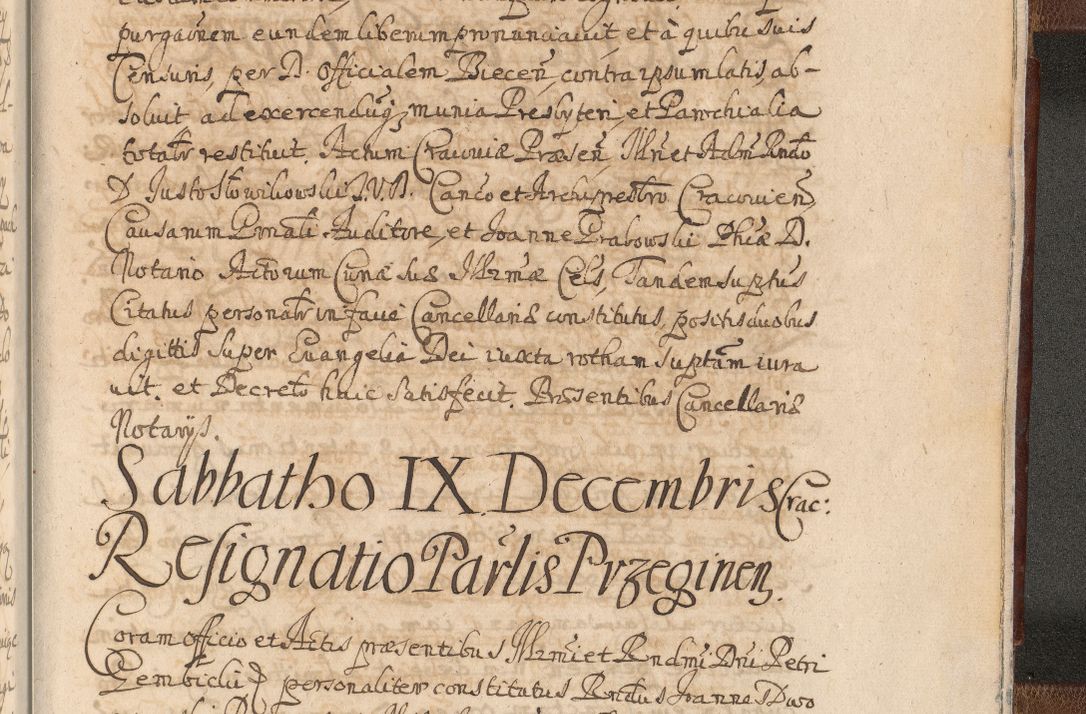 purgaōnem eundem liberum pronunciavit et à quibusvis
Censuris, per D. Officialem Biecen̄, contra ipsum latis, ab-
soluit ad exercendaq; munia Presbyteri et Parochialia
totalr̄ restituit. Actum Cracoviæ Præsen̄ Illr̄i et Adm̄ Rndo
D Justo Słowikowski I.V.D. Canco et Archipresbr̄o Cracovien̄,
Causarum Prnāli Auditore, et Joanne Grabowski Phiæ D.
Notario Actorum Curiæ suæ Illrmæ Cels, Tandem suptus
Citatus personalr̄ in facie Cancellariæ constitutus, positis duobus
digitis super Evangelia Dei iuxta rotham suptam iura
uit. et Decreto huic satisfecit. Præsentibus Cancellariæ
Notarijs.
Sabbatho IX Decembris Crac:
Resignatio Parlis Przeginen̄.
Coram officio et Actis præsentibus Illrmi et Rndmi Dn̄i Petri
Gembicki personaliter constitutus Rndus Joannes Dwo